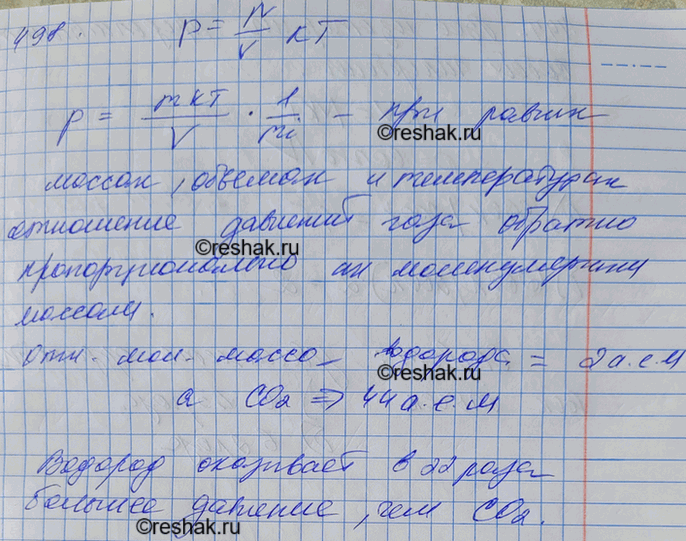 498. p = N/V kT
p = mkT/V · 1/mᵢ - при равных
©reshak.ru
массах, объемах и температурах
отношение давлений газа обратно
©reshak.ru
пропорционально их молекулярным
массам.
Отн. мол. масса водорода = 2 а.е.м
©reshak.ru
а CO₂ => 44 а.е.м
Водород оказывает в 22 раза
большее давление, чем CO₂.
©reshak.ru